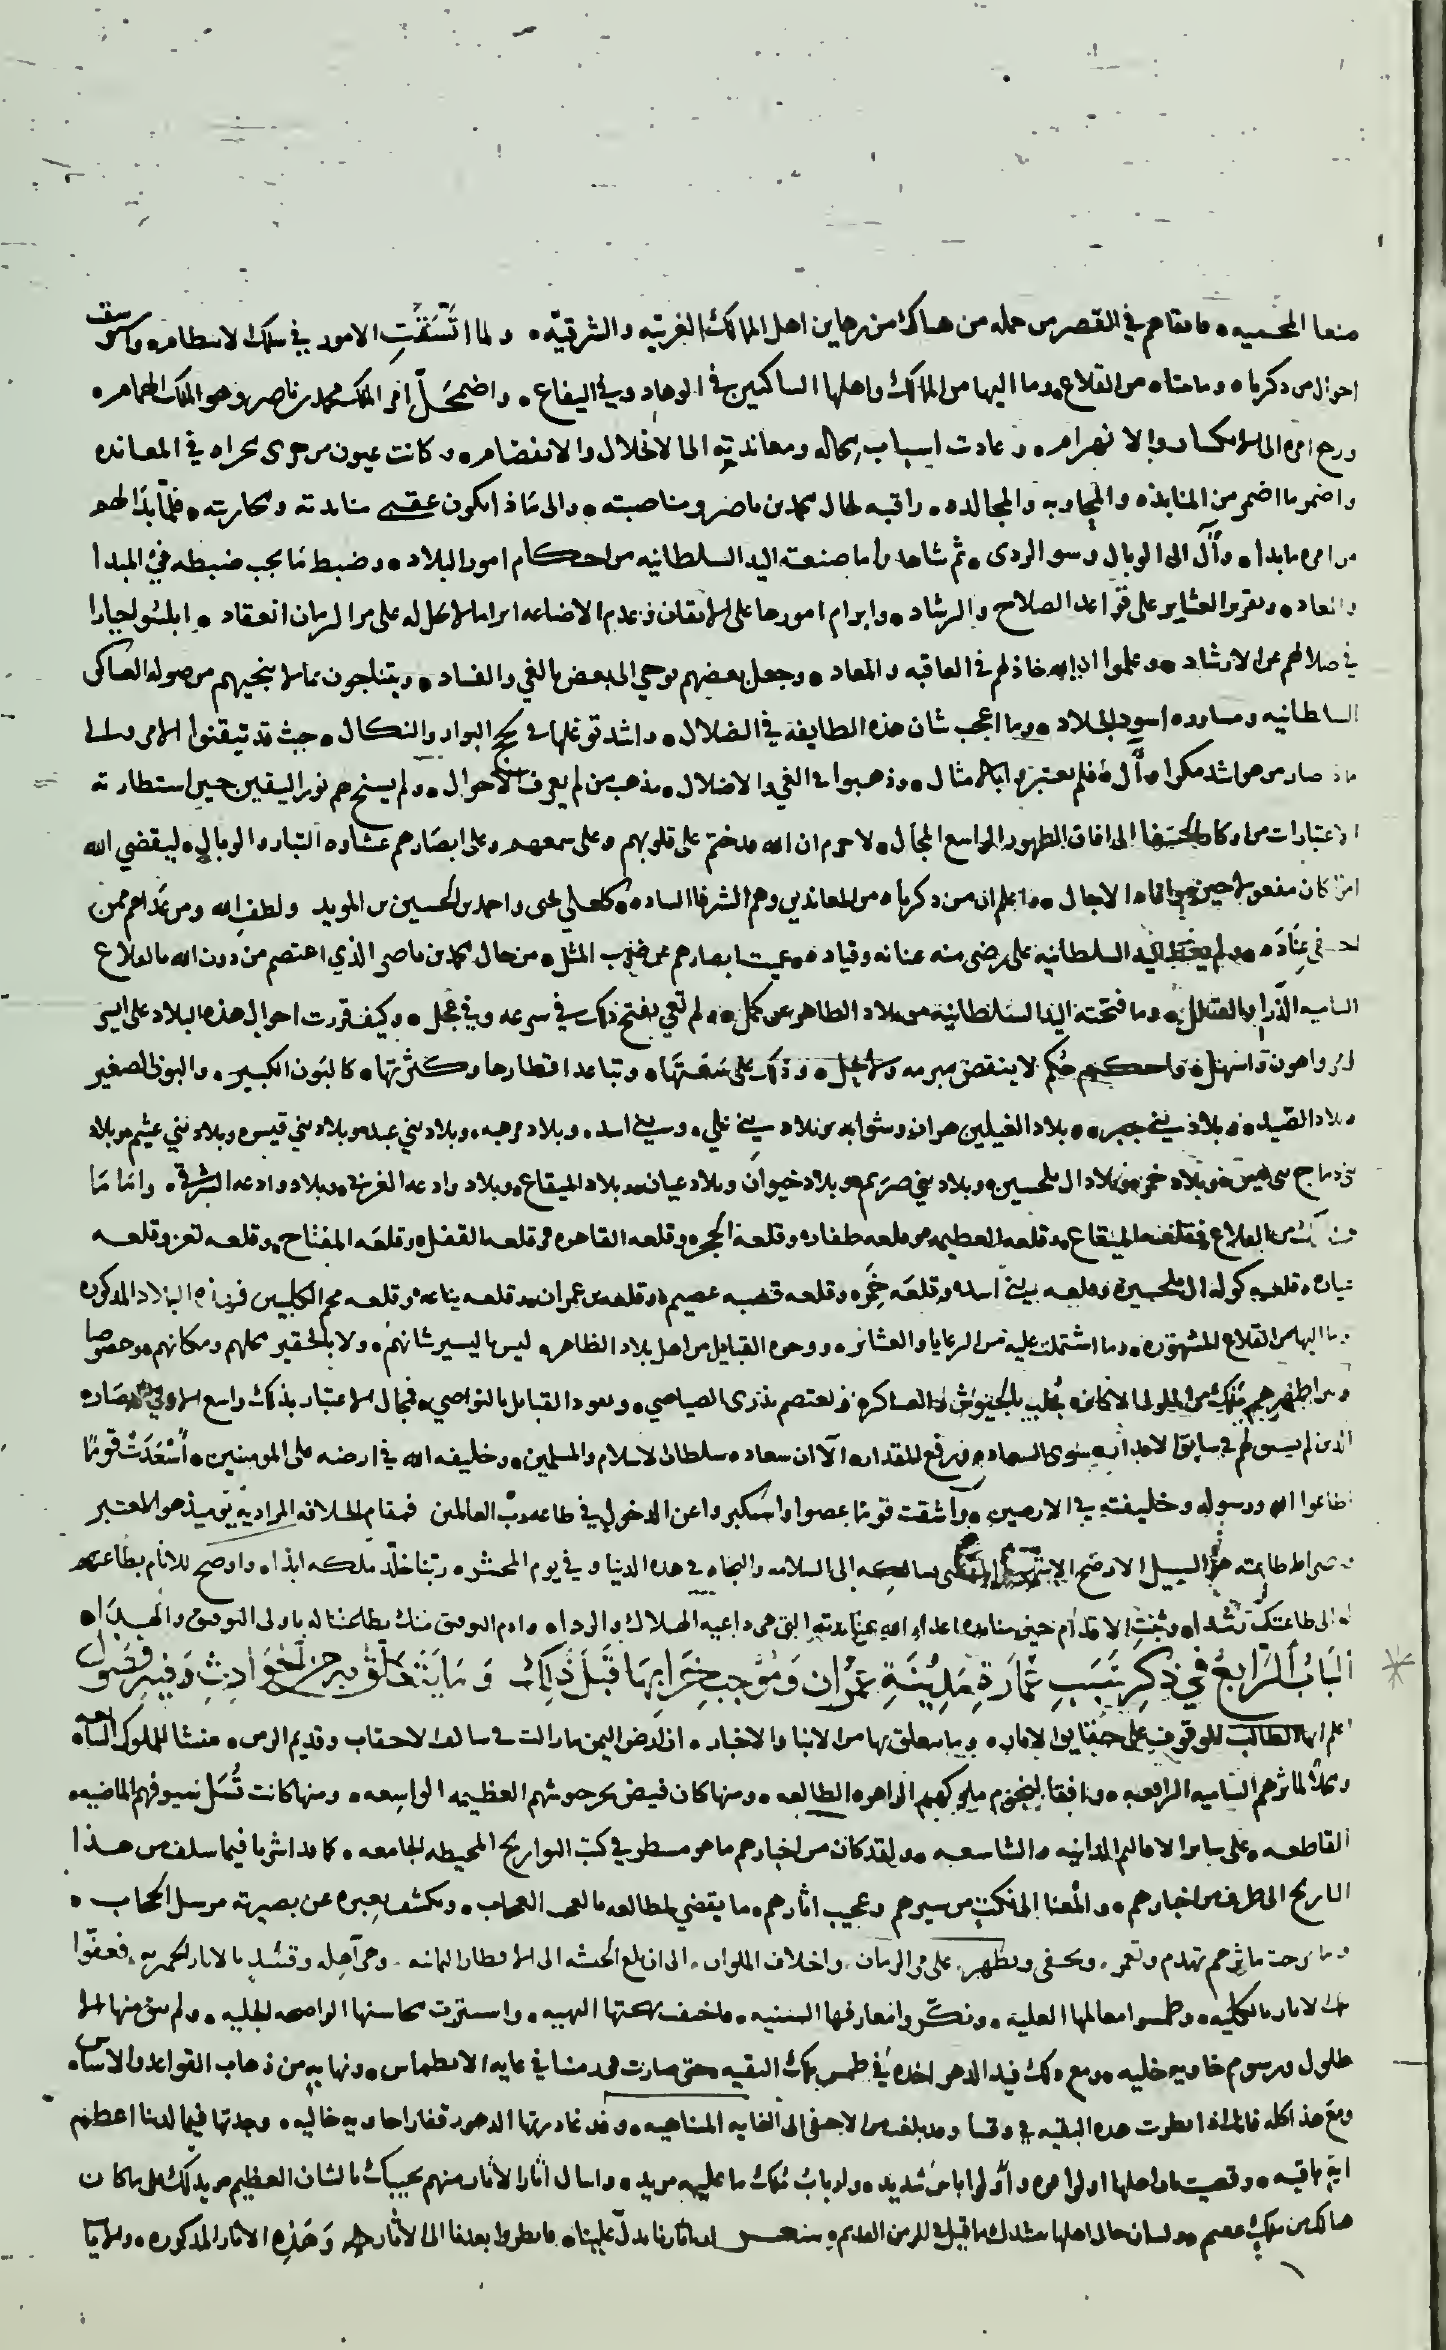 صنعا المحميه فابقاهم في القصر من جمله من هناك من رهاين اهل الممالك الغربيه والشرقيّه ولما اتَّسَقَتِ الامور في سلك الانتظام
احوال من ذكرناه من القلاع وما اليها من الممالك واهلها الساكنين في الوهاد وفي اليفاع واضمحَلّ امر الملك محمد بن ناصر
ورجع امره الى الانكسار والانهرام وعادت اسباب ومعانديه الى الانحلال والانفصام وكانت عيون من جرى مجراه في المعانده
واضمر ما اضمر من المنابذه والمحاربه والمجالده راقبه لحال محمد بن ناصر ومناصبته والى ماذا يكون عقبى منابذته ومحاربته فلمّا بدا لهم
من امره ما بدا وآل الى الوبال وسو الردى ثم شاهدوا ما صنعته اليد السلطانيه من احكام امور البلاد وضبط ما يجب ضبطه في المبدا
والمعاد وتقرير العشاير على قواعد الصلاح والرشاد وابرام امورها على الاتقان وعدم الاضاعه على مر الزمان انعقاد ابلسوا حيارا
في ضلالهم عن الارشاد وعلموا ان الله خاذلهم في العاقبه والمعاد وجعل بعضهم يوحي الى بعض بالغي والفساد ويتناجون بما لا ينجيهم من صوله العساكر
السلطانيه ومساوره اسود الجلاد وما اعجب شان هذه الطايفه في الضلال واشد توغلها في لجج البوار والنكال حيث قد تيقنوا الامر
فلم يعتبروا مثال وذهبوا في الغي والاضلال مذهب من لم يعرف الاحوال ولم يسنح لهم نور اليقين حين استطارته
الاعتبارات الى افاق الظهور الواسع المجال لا جرم ان الله قد ختم على قلوبهم وعلى سمعهم وعلى ابصارهم غشاوه التبار والوبال ليقضي الله
امرا كان مفعولا حين موافاه الاجال واعلم ان من ذكرناه من المعاندين وهم الشرفا الساده كعلي يحيى واحمد بن الحسين بن المويد ولطف الله ومن عداهم ممن
في عناده ولم اليد السلطانيه على رضى منه عنانه وقياده عميت ابصارهم عن ضرب المثل من حال محمد بن ناصر الذي اعتصم من دون الله بالقلاع
وما فتحته اليد السلطانيه من بلاد الظاهر عن كمل ولم تعي بفتح ذلك في سرعه وفي عجل وكيف قررت احوال هذه البلاد على ايسر
واهون واسهل واحكمتهم حكم لا ينقض مبرمه وذلك على سعتها وتباعد اقطارها وكثرتها كالبون الكبير والبون الصغير
وبلاد الصيد وبلاد بني جبر وبلاد بني علي وبني اسد وبلاد مرهبه وبلاد بني عبد وبلاد بني قيس وبلاد بني عثيم وبلاد
وبلاد خمر وبلاد ال الحسين وبلاد بني صريم وبلاد خيوان وبلاد عيان وبلاد الميقاع وبلاد وادعه الغربيه وبلاد وادعه الشرقيه واما ما
من القلاع فقلعه الميقاع وقلعه العظيمه وقلعه ظفار وقلعه الحجر وقلعه القاهره وقلعه القفل وقلعه المفتاح وقلعه تعز وقلعه
عيان وقلعه كوله ال الحسين وقلعه بني اسد وقلعه خمر وقلعه قصبه عصيم وقلعه بن عمران وقلعه يناعه وقلعه فهذه البلاد المذكوره
وما اليها من القلاع المشهوره وما اشتملت عليه من الرعايا والعشاير ووجوه القبايل من اهل بلاد الظاهر ليس باليسير شانهم ولا بالحقير محلهم ومكانهم وخصوصا
الجيوش والعساكر وتعتصم بذرى الصياصي وتقود القبايل بالنواصي فمجال الاعتبار بذلك واسع لاولي الابصار
الذين لم يسبق لهم في سابق سوى السعاده ورفع المقدار الا ان سعاده سلطان الاسلام والمسلمين وخليفه الله في ارضه على المومنين أسْعَدَتْ قومًا
اطاعوا الله ورسوله وخليفته في الارضين واشقت قوما عصوا واستكبروا عن الدخول في طاعه رب العالمين فمقام الخلافه المراديه يوميذ هو المعتبر
وصراط طاعته هو السبيل الاوضح بسالكه الى السلامه والنجاه في هذه الدنيا وفي يوم المحشر ربنا خلّد ملكه ابدا واوضح للانام بطاعته
الى طاعتك رشدا وثبت الاقدام حين منابذه اعداء الله التي هي داعيه الهلاك والردا وادم التوفيق منك بطاعتنا له يا ولي التوفيق والهدا
البَابُ الرَّابِعُ في ذِكرِ سَبَبِ عِمَارَةِ مَدِيْنَةِ عمْران وَمُوْجب خَرَابِهَا قَبْلَ ذَلِكَ وَمَا يَتَعَلَّقُ بهِ مِنَ الحَوَادِثِ وَفيهِ فصُولٌ
اعلم ايها الطالب للوقوف على حقايق الاثار وما يتعلق بها من الانبا والاخبار ان ارض اليمن ما زالت في سالف الاحقاب وقديم الزمن منشا للملوك التبابعه
ومحلّا لماثرهم الساميه الرافعه وافقا لنجوم ملوكهم الزاهره الطالعه ومنها كان فيض بحر جيوشهم العظيمه الواسعه ومنها كانت تُسَل سيوفهم الماضيه
القاطعه على ساير الاقاليم الدانيه والشاسعه ولقد كان من اخبارهم ما هو مسطور في كتب التواريخ المحيطه الجامعه كما قد اشرنا فيما سلف من هذا
التاريخ الى طرف من اخبارهم والمعنا الى نكت من سيرهم وعجيب اثارهم ما يقضي لمطالعه بالعجب العجاب ويكشف لمعتبره عن بصيرته مرسل الحجاب
وما برحت ماثرهم تهدم وتعمر وتخفى وتظهر على مر الزمان واختلاف الملوان الى ان بلغ الحبشه الى الاقطار اليمانيه فعفّوا
تلك الاثار بالكليه وطمسوا معالمها العليه ونكّروا معارفها السنيه فاختفت بهجتها البهيه واستترت محاسنها الواضحه الجليه ولم يبق منها الا
طلول ورسوم خاويه خليه ومع ذلك فيد الدهر اخذه في طمس تلك البقيه حتى صارت في عصرنا في غايه الانطماس ونهايه من ذهاب القواعد والاساس
ومع هذا كله فانك اذا نظرت هذه البقيه في وقتنا وقد بلغت من الاختفى الى الغايه المتناهيه وقد غادرتها الدهور قفارا خاويه خاليه وجدتها فيما لدينا اعظم
ايه باقيه وقضيت بان اهلها اولوا قوه واولوا باس شديد وارباب ملك ما عليه مزيد واسال اثار الاثار منهم يجيبك بالشان العظيم ويدلك على ما كان
هنالك من ملك عميم ولسان حال اهلها ينشدك ما قيل في الزمن القديم شعر ان اثارنا تدل علينا فانظروا بعدنا الى الاثار وهَذِه الاثار المذكوره